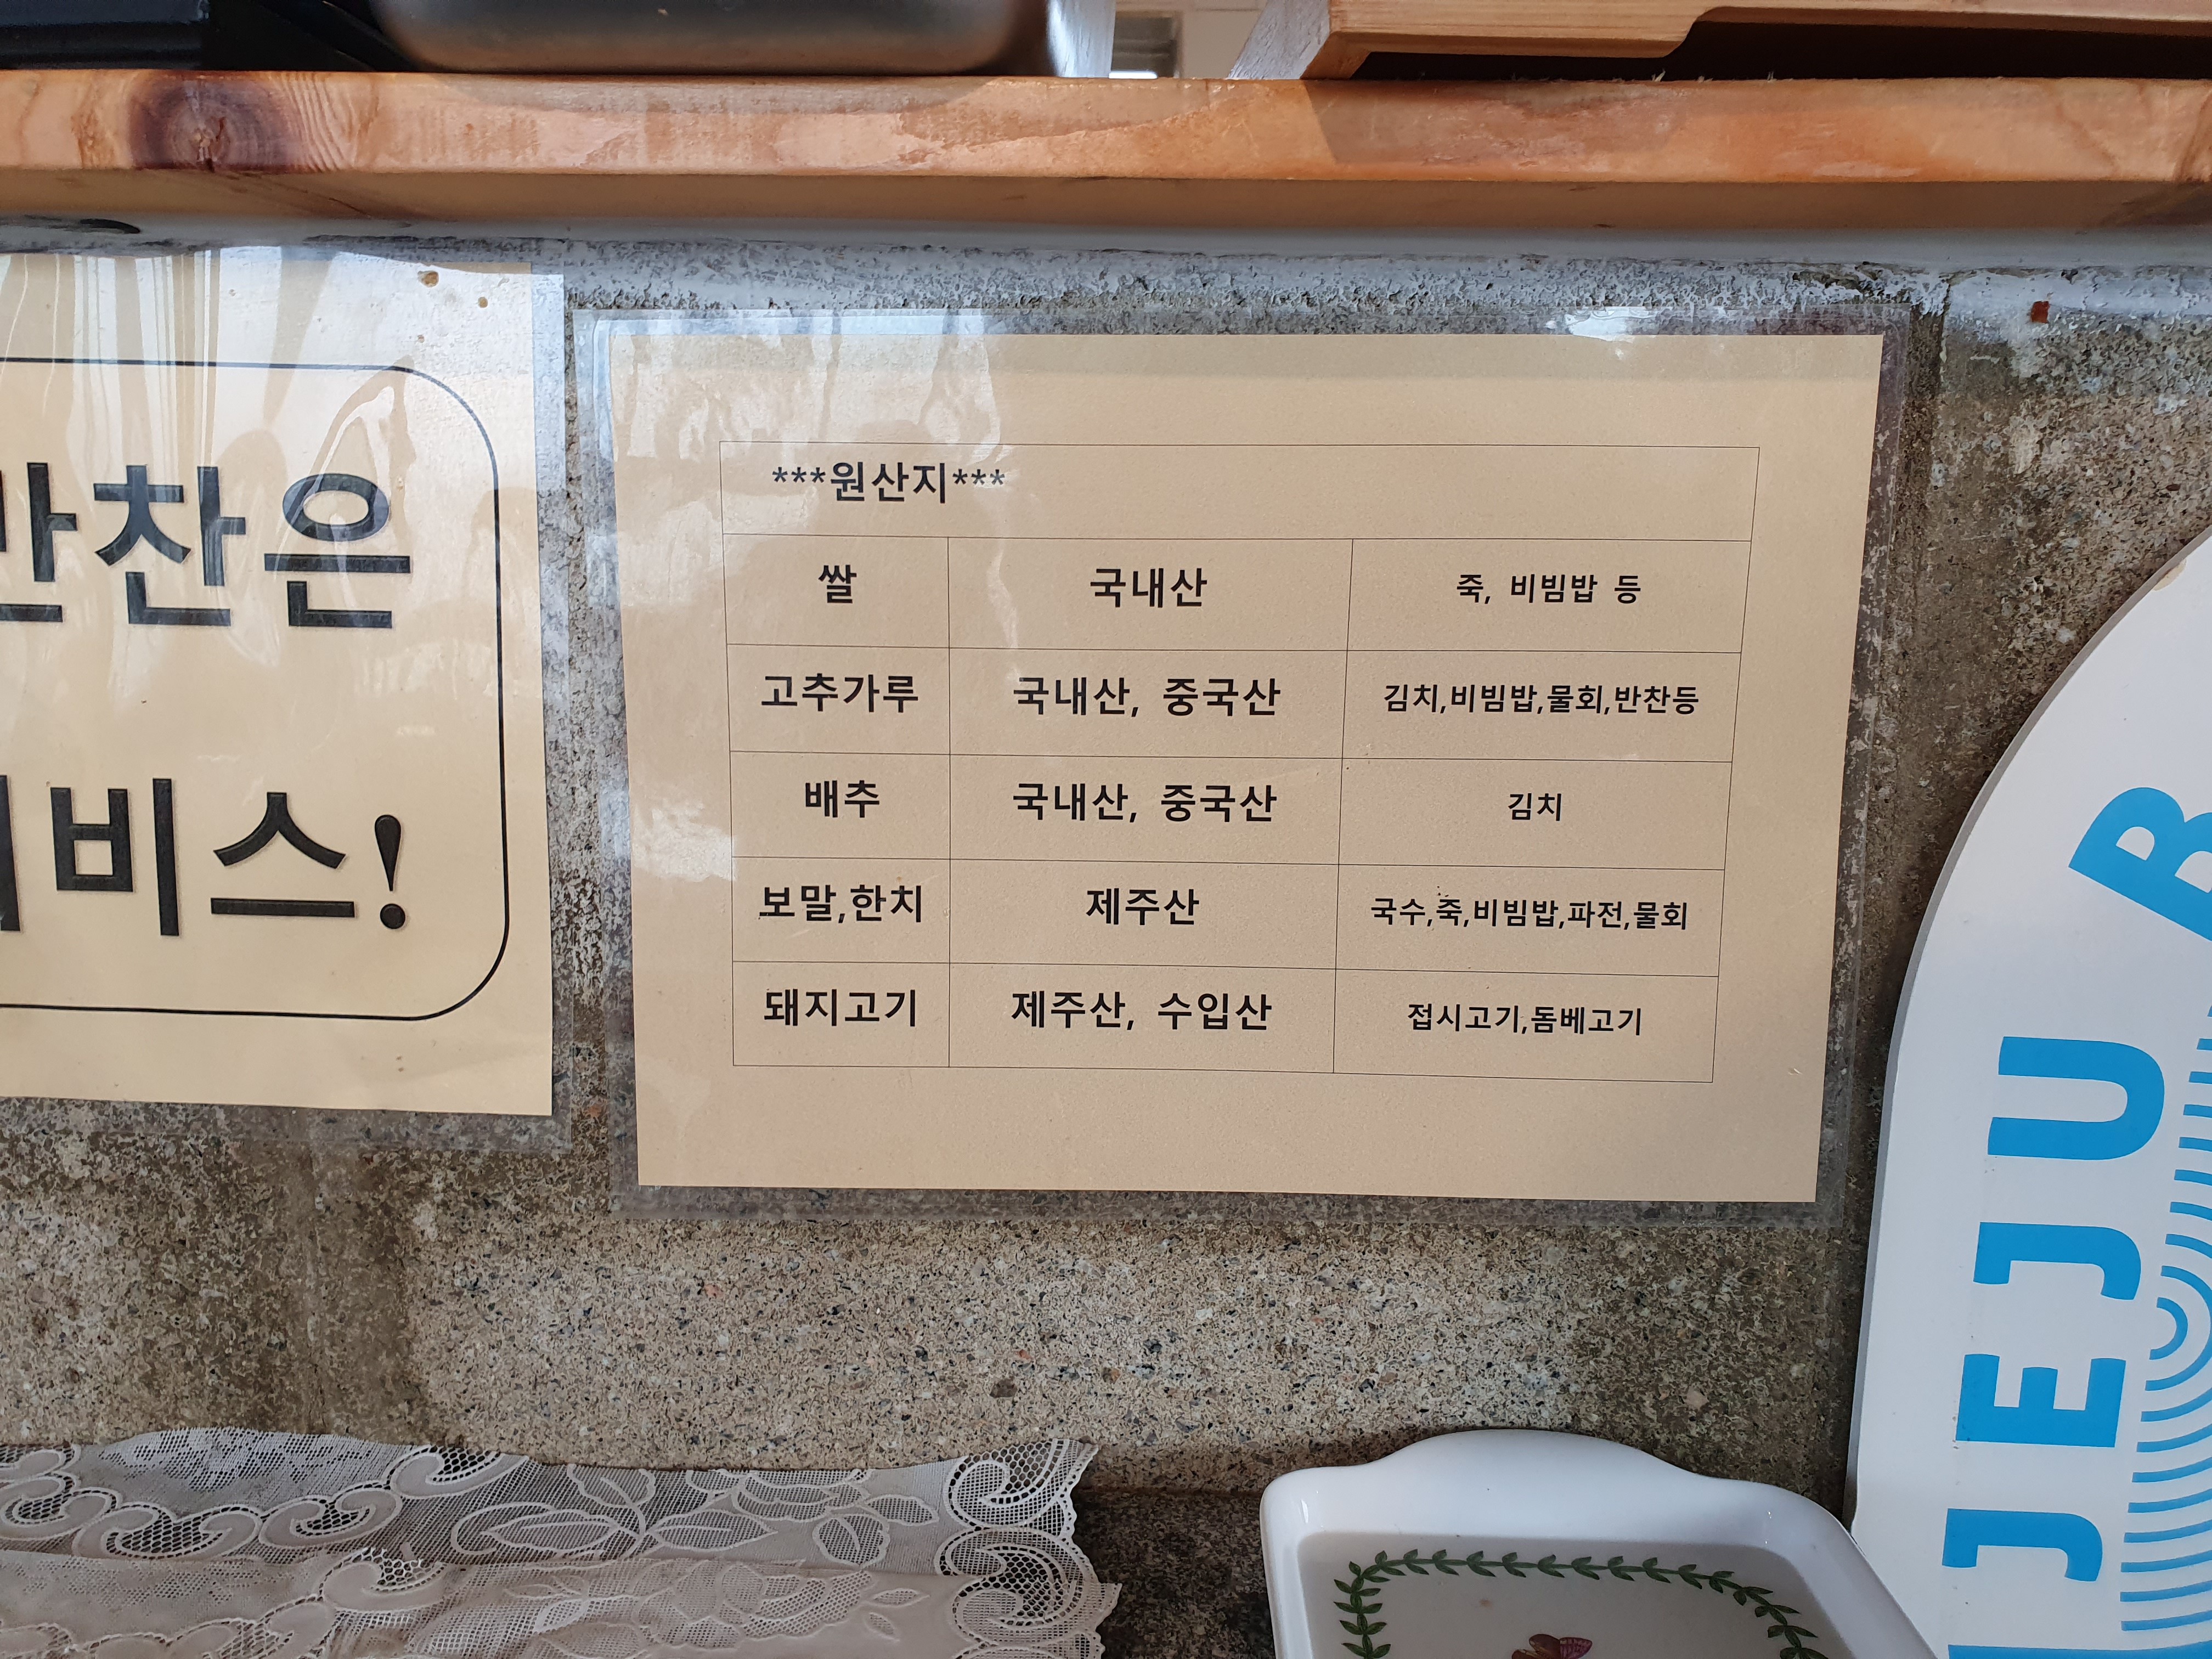 반찬은
비스!
***원산지***
쌀 국내산 죽, 비빔밥 등
고추가루 국내산, 중국산 김치,비빔밥,물회,반찬등
배추 국내산, 중국산 김치
보말,한치 제주산 국수,죽,비빔밥,파전,물회
돼지고기 제주산, 수입산 접시고기,돔베고기
JEJU B